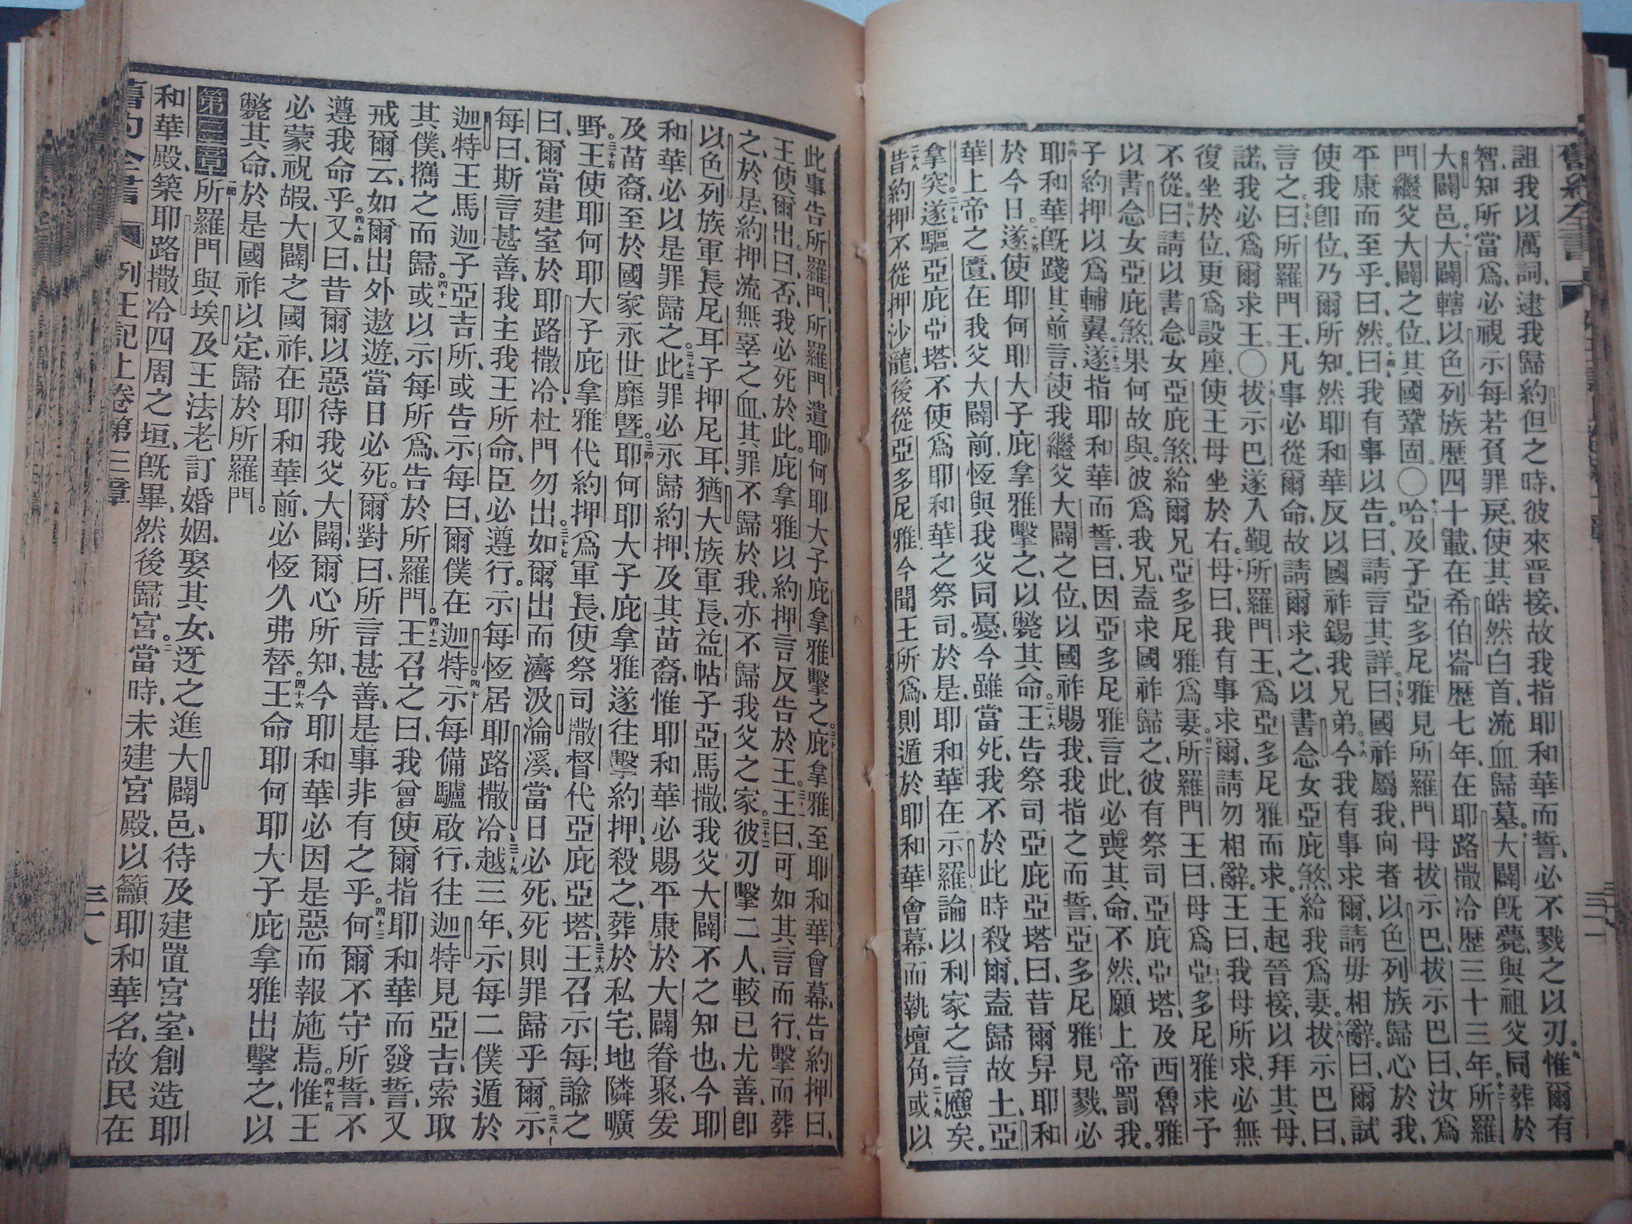 詛我以厲詞、逮我歸約但之時、彼來晉接、故我指耶和華而誓、必不戮之以刃。惟爾有
智、知所當爲、必視示每若負罪戾、使其皓然白首、流血歸墓。大闢旣薨、與祖父同葬於
大闢邑、大闢轄以色列族歷四十載、在希伯崙歷七年、在耶路撒冷歷三十三年、所羅
門繼父大闢之位、其國鞏固。〇哈及子亞多尼雅見所羅門母拔示巴、拔示巴曰、汝爲
平康而至乎。曰、然。曰、我有事以告。曰、請言其詳。曰、國祚屬我向者以色列族歸心於我、
使我卽位、乃爾所知、然耶和華反以國祚錫我兄弟。今我有事求爾、請毋相辭。曰、爾試
言之。曰、所羅門王凡事必從爾命、故請爾求之、以書念女亞庇煞給我爲妻。拔示巴曰、
諾、我必爲爾求王。〇拔示巴遂入覲所羅門王、爲亞多尼雅而求。王起晉接、以拜其母、
復坐於位、更爲設座、使王母坐於右。母曰、我有事求爾、請勿相辭。王曰、我母所求、必無
不從。曰、請以書念女亞庇煞給爾兄亞多尼雅爲妻。所羅門王曰、母爲亞多尼雅求子
以書念女亞庇煞果何故與。彼爲我兄、盍求國祚歸之、彼有祭司亞庇亞塔、及西魯雅
子約押以爲輔翼。遂指耶和華而誓曰、因亞多尼雅言此、必喪其命、不然、願上帝罰我。
耶和華旣踐其前言、使我繼父大闢之位、以國祚賜我、我指之而誓、亞多尼雅見戮、必
於今日。遂使耶何耶大子庇拿雅擊之、以斃其命。王告祭司亞庇亞塔曰、昔爾舁耶和
華上帝之匱、在我父大闢前、恆與我父同憂、今雖當死、我不於此時殺爾、盍歸故土、亞
拿突。遂驅亞庇亞塔、不使爲耶和華之祭司。於是耶和華在示羅論以利家之言應矣。
昔約押不從押沙龍、後從亞多尼雅、今聞王所爲、則遁於耶和華會幕、而執壇角。或以
此事告所羅門、所羅門遣耶何耶大子庇拿雅擊之。庇拿雅至耶和華會幕、告約押曰、
王使爾出。曰、否、我必死於此。庇拿雅以約押言反告於王。王曰、可如其言而行、擊而葬
之、於是約押流無辜之血、其罪不歸於我、亦不歸我父之家。彼刃擊二人、較已尤善、卽
以色列族軍長尼耳子押尼耳、猶大族軍長益帖子亞馬撒、我父大闢不之知也、今耶
和華必以是罪歸之。此罪必永歸約押、及其苗裔、惟耶和華必賜平康於大闢眷聚、爰
及苗裔、至於國家、永世靡曁。耶何耶大子庇拿雅遂往擊約押、殺之、葬於私宅、地隣曠
野。王使耶何耶大子庇拿雅代約押爲軍長、使祭司撒督代亞庇亞塔。王召示每、諭之
曰、爾當建室於耶路撒冷、杜門勿出。如爾出而濟汲淪溪、當日必死、死則罪歸乎爾。示
每曰、斯言甚善、我主我王所命、臣必遵行。示每恆居耶路撒冷、越三年、示每二僕遁於
迦特王馬迦子亞吉所、或告示每曰、爾僕在迦特。示每備驢啟行、往迦特見亞吉、索取
其僕、攜之而歸。或以示每所爲、告於所羅門。王召之曰、我曾使爾指耶和華而發誓、又
戒爾云、如爾出外遨遊、當日必死。爾對曰、所言甚善、是事非有之乎。何爾不守所誓、不
遵我命乎。又曰、昔爾以惡待我父大闢、爾心所知、今耶和華必因是惡而報施焉。惟王
必蒙祝嘏、大闢之國祚、在耶和華前、必恆久弗替。王命耶何耶大子庇拿雅出擊之、以
斃其命、於是國祚以定、歸於所羅門。
第三章 所羅門與埃及王法老訂婚姻、娶其女、迓之進大闢邑、待及建置宮室、創造耶
和華殿、築耶路撒冷四周之垣、旣畢、然後歸宮。當時、未建宮殿、以籲耶和華名、故民在
舊約全書 列王記上卷 第三章 三十八